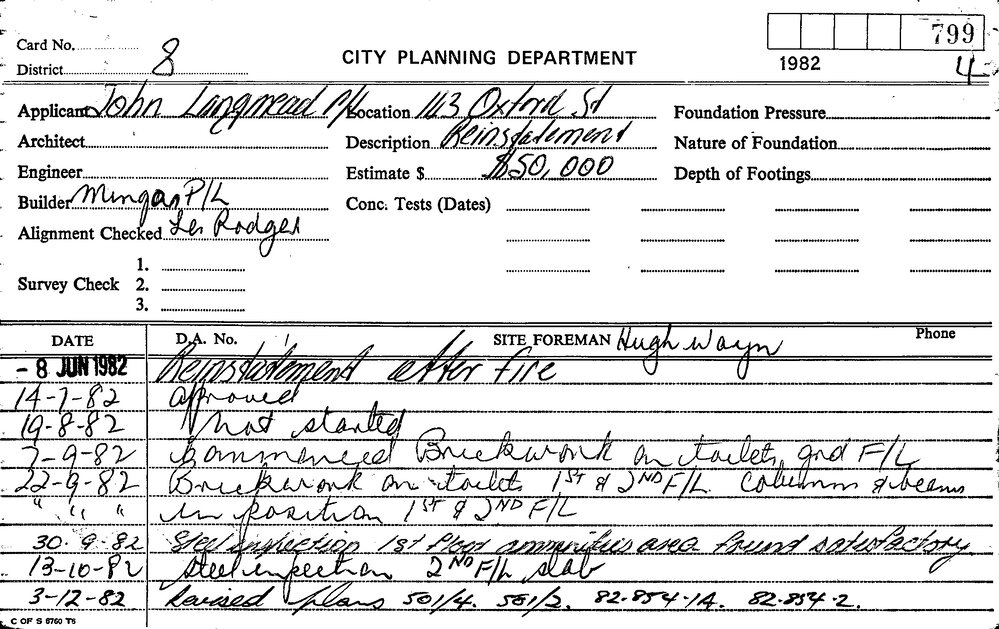 Card No. 799
CITY PLANNING DEPARTMENT
District 8 1982 4
Applicant John Langmead P/L Location 143 Oxford St Foundation Pressure
Architect Description Reinstatement Nature of Foundation
Engineer Estimate $ $50,000 Depth of Footings
Builder Mingar P/L Conc. Tests (Dates)
Alignment Checked Les Rodger
1.
Survey Check 2.
3.
DATE D.A. No. SITE FOREMAN Hugh Wayn Phone
- 8 JUN 1982 Reinstatement after fire
14-7-82 approved
19-8-82 Not started
7-9-82 Commenced Brickwork on toilets grd F/L
22-9-82 Brickwork on toilets 1ST & 2ND F/L columns & beams
" " " in position 1ST & 2ND F/L
30.9.82 Steel inspection 1st Floor ammenities area found satisfactory
13-10-82 steel inspection 2ND F/L slab
3-12-82 Revised plans 501/4. 501/2. 82.854.1A. 82.854.2.
C OF S 6760 T6